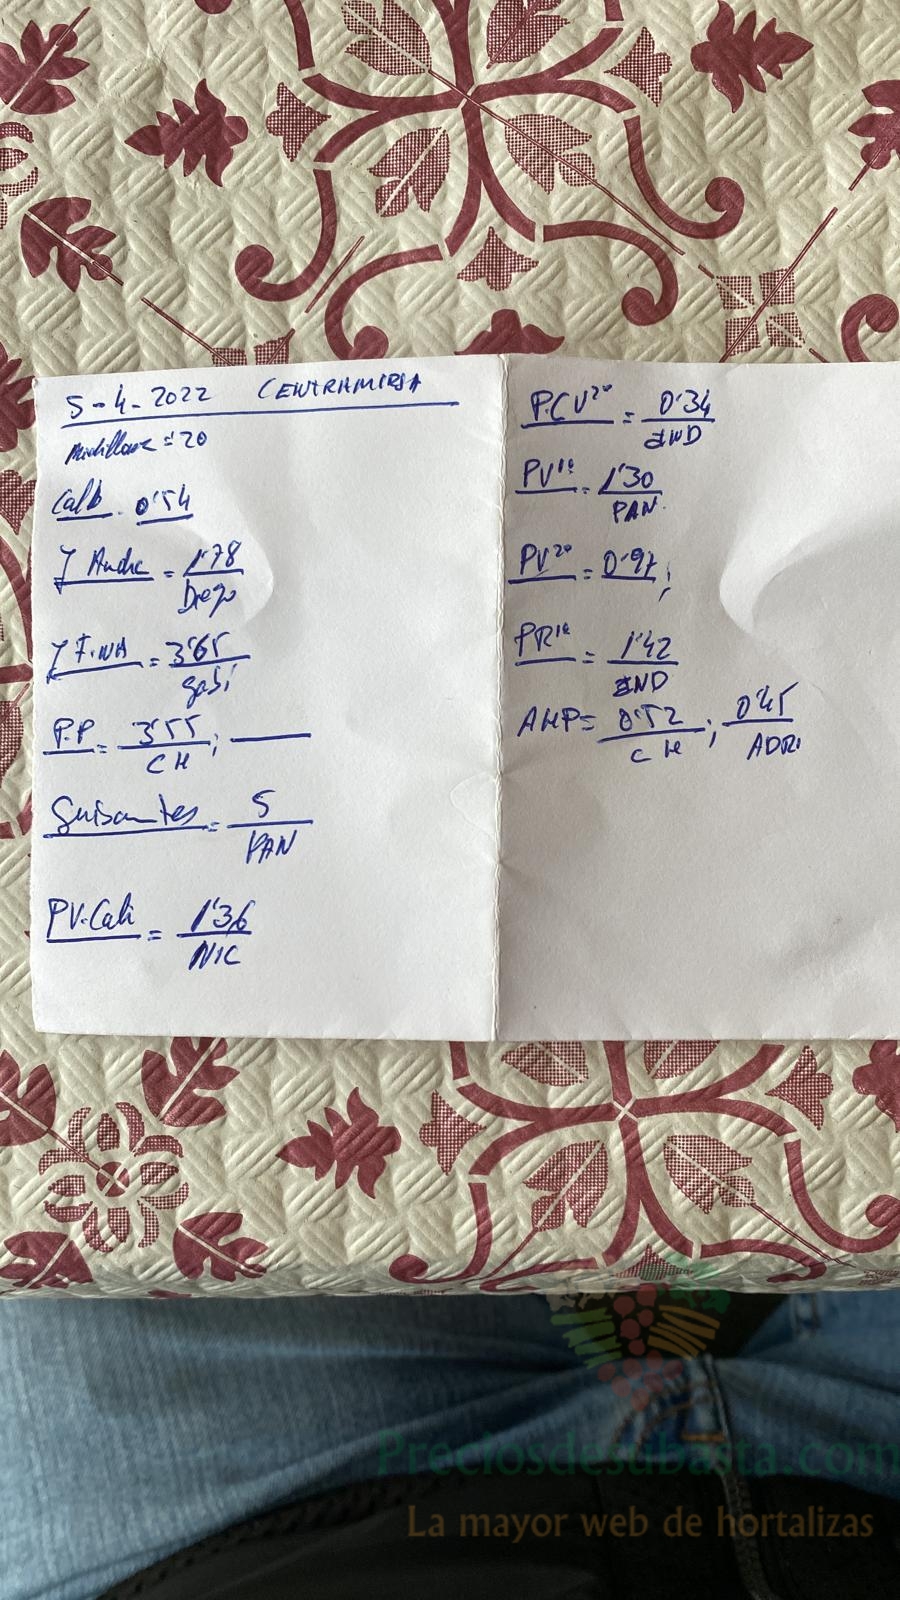 5-4-2022 CENTRAMIRSA
= 20
Calb. 0'54
J Andre = 1'78
Diego
J FINA = 3'65
gabi
P.P = 3'55 ; ——
CH
Guisantes = 5
PAN
PV.Cali = 1'36
NIC
P.CV²ª = 0'34
AND
PV¹ª = 1'30
PAN.
PV²ª = 0'97 ;
PR¹ª = 1'42
AND
AMP = 0'52 ; 0'45
CH ADRI
Preciosdesubasta.com
La mayor web de hortalizas